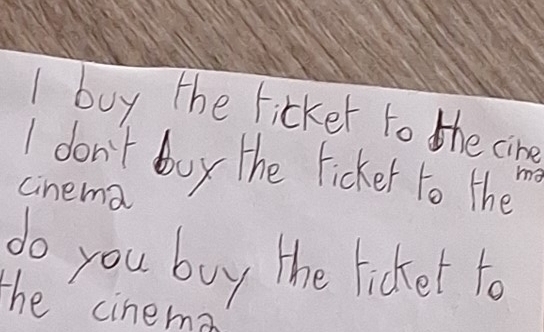 I buy the ticket to the cine
ma
I don't buy the ticket to the
cinema
do you buy the ticket to
the cinema